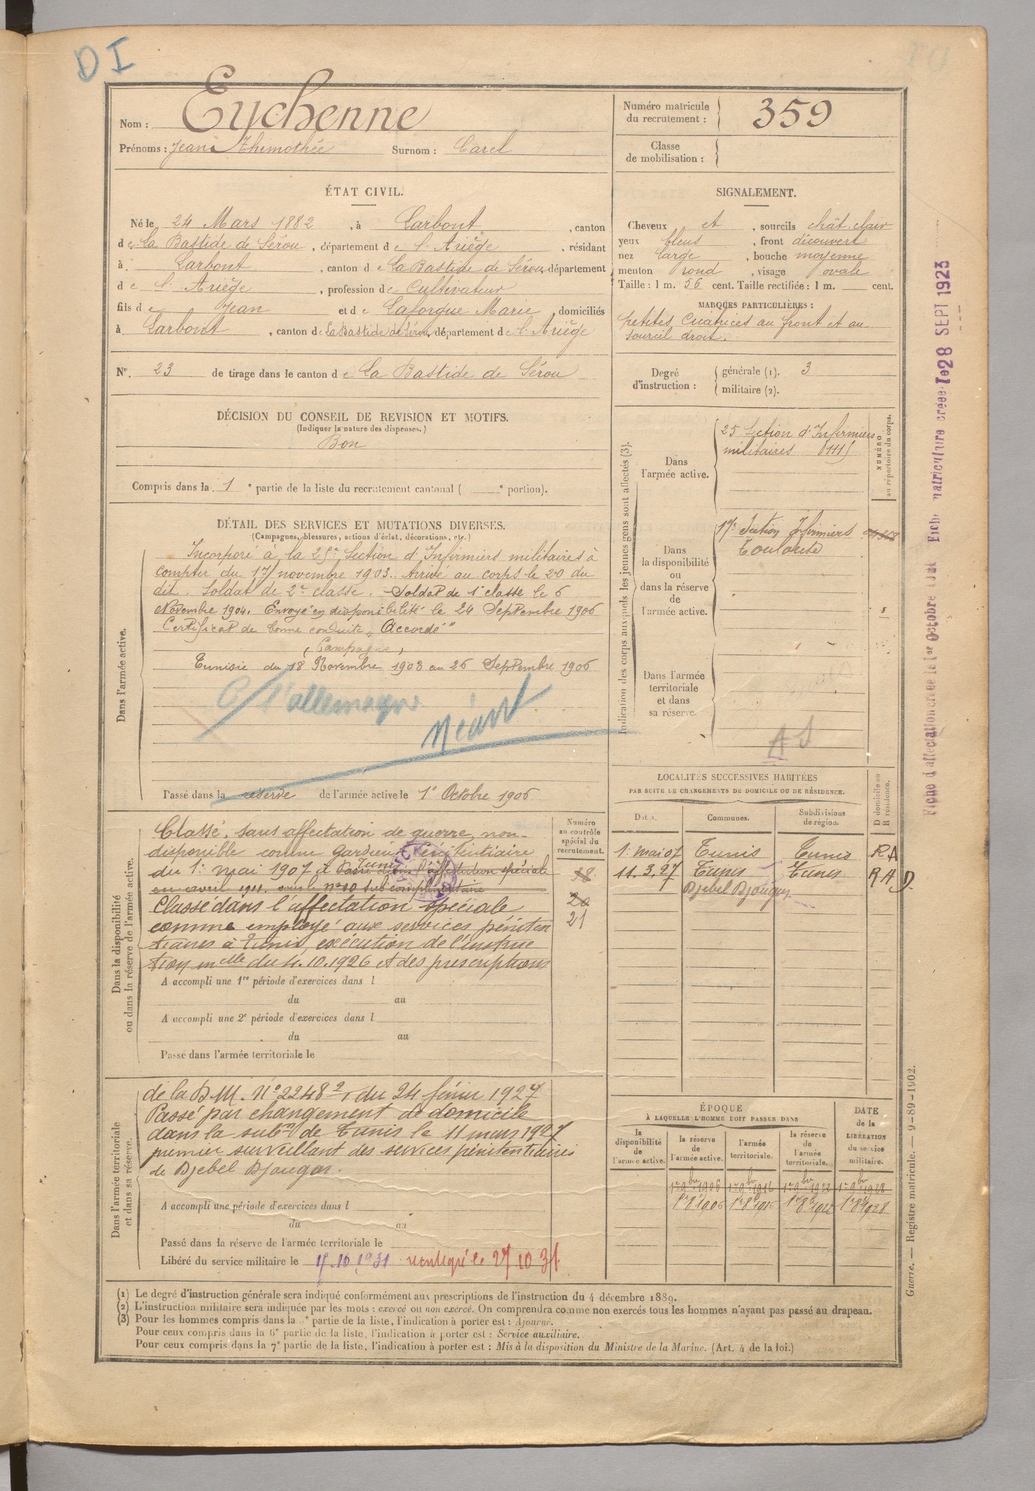 DI
Nom : Eychenne
Prénoms : Jean Thimothée Surnom : Carel
Numéro matricule du recrutement : 359
Classe de mobilisation :
ÉTAT CIVIL.
Né le 24 Mars 1882, à Larbont, canton
de La Bastide de Sérou, département de l'Ariège, résidant
à Larbont, canton de La Bastide de Sérou, département
de l'Ariège, profession de Cultivateur
fils de Jean et de Laforgue Marie, domiciliés
à Larbont, canton de La Bastide de Sérou, département de l'Ariège
N° 23 de tirage dans le canton de La Bastide de Sérou
SIGNALEMENT.
Cheveux et, sourcils chât. clair
yeux bleus, front découvert
nez large, bouche moyenne
menton rond, visage ovale
Taille : 1 m. 56 cent. Taille rectifiée : 1 m. cent.
MARQUES PARTICULIÈRES :
Petites Cicatrices au front et au
sourcil droit.
Degré d'instruction : générale (1). 3
militaire (2).
DÉCISION DU CONSEIL DE REVISION ET MOTIFS.
(Indiquer la nature des dispenses.)
Bon
Compris dans la 1e partie de la liste du recrutement cantonal ( e portion).
DÉTAIL DES SERVICES ET MUTATIONS DIVERSES.
(Campagnes, blessures, actions d'éclat, décorations, etc.)
Dans l'armée active.
Incorporé à la 25me Section d'Infirmiers militaires à
compter du 17 novembre 1903. Arrivé au corps le 20 du
dit. Soldat de 2e classe. Soldat de 1e classe le 6
Novembre 1904. Envoyé en disponibilité le 24 Septembre 1906
Certificat de bonne conduite "Accordé"
(Campagne)
Tunisie du 18 Novembre 1903 au 26 Septembre 1906
C/ l'allemagne
néant
Passé dans la réserve de l'armée active le 1er Octobre 1906
Indication des corps auxquels les jeunes gens sont affectés (3).
NUMÉRO au répertoire du corps.
Dans l'armée active.
25 Section d'Infirmiers
militaires
Dans la disponibilité ou dans la réserve de l'armée active.
17e Section Infirmiers
Toulouse
Dans l'armée territoriale et dans sa réserve.
AS
LOCALITÉS SUCCESSIVES HABITÉES
PAR SUITE DE CHANGEMENTS DE DOMICILE OU DE RÉSIDENCE.
Dates. Communes. Subdivisions de région. D domicile ou R résidence.
1. mai 07 Tunis Tunis RA
11.3.27 Tunis Tunis RA D.
Djebel Djougar
Dans la disponibilité ou dans la réserve de l'armée active.
Numéro au contrôle spécial du recrutement.
Classé, sans affectation de guerre, non-
disponible comme gardien Pénitentiaire
du 1er mai 1907 à Tunis
18
Classé dans l'affectation spéciale 20
comme employé aux services péniten 21
tiaires à Tunis, exécution de l'instruc
tion mlle du 4.10.1926 et des prescriptions
A accompli une 1re période d'exercices dans l
du au
A accompli une 2e période d'exercices dans l
du au
Passé dans l'armée territoriale le
Dans l'armée territoriale et dans sa réserve.
de la D.M. N° 2248 2/1 du 24 février 1927
Passé par changement de domicile
dans la subon de Tunis le 11 mars 1927
premier surveillant des services pénitentiaires
de Djebel Djougar.
A accompli une période d'exercices dans l
du au
Passé dans la réserve de l'armée territoriale le
Libéré du service militaire le 15.10.1931
ÉPOQUE À LAQUELLE L'HOMME DOIT PASSER DANS
la disponibilité de l'armée active. la réserve de l'armée active. l'armée territoriale. la réserve de l'armée territoriale. DATE de la LIBÉRATION du service militaire.
1er 8bre 1906 1er 8bre 1916 1er 8bre 1922 1er 8bre 1928
(1) Le degré d'instruction générale sera indiqué conformément aux prescriptions de l'instruction du 4 décembre 1889.
(2) L'instruction militaire sera indiquée par les mots : exercé ou non exercé. On comprendra comme non exercés tous les hommes n'ayant pas passé au drapeau.
(3) Pour les hommes compris dans la 5e partie de la liste, l'indication à porter est : Ajourné.
Pour ceux compris dans la 6e partie de la liste, l'indication à porter est : Service auxiliaire.
Pour ceux compris dans la 7e partie de la liste, l'indication à porter est : Mis à la disposition du Ministre de la Marine. (Art. 4 de la loi.)
Guerre. — Registre matricule. — 9-89-1902.
Fiche matriculaire créée le 28 SEPT 1923